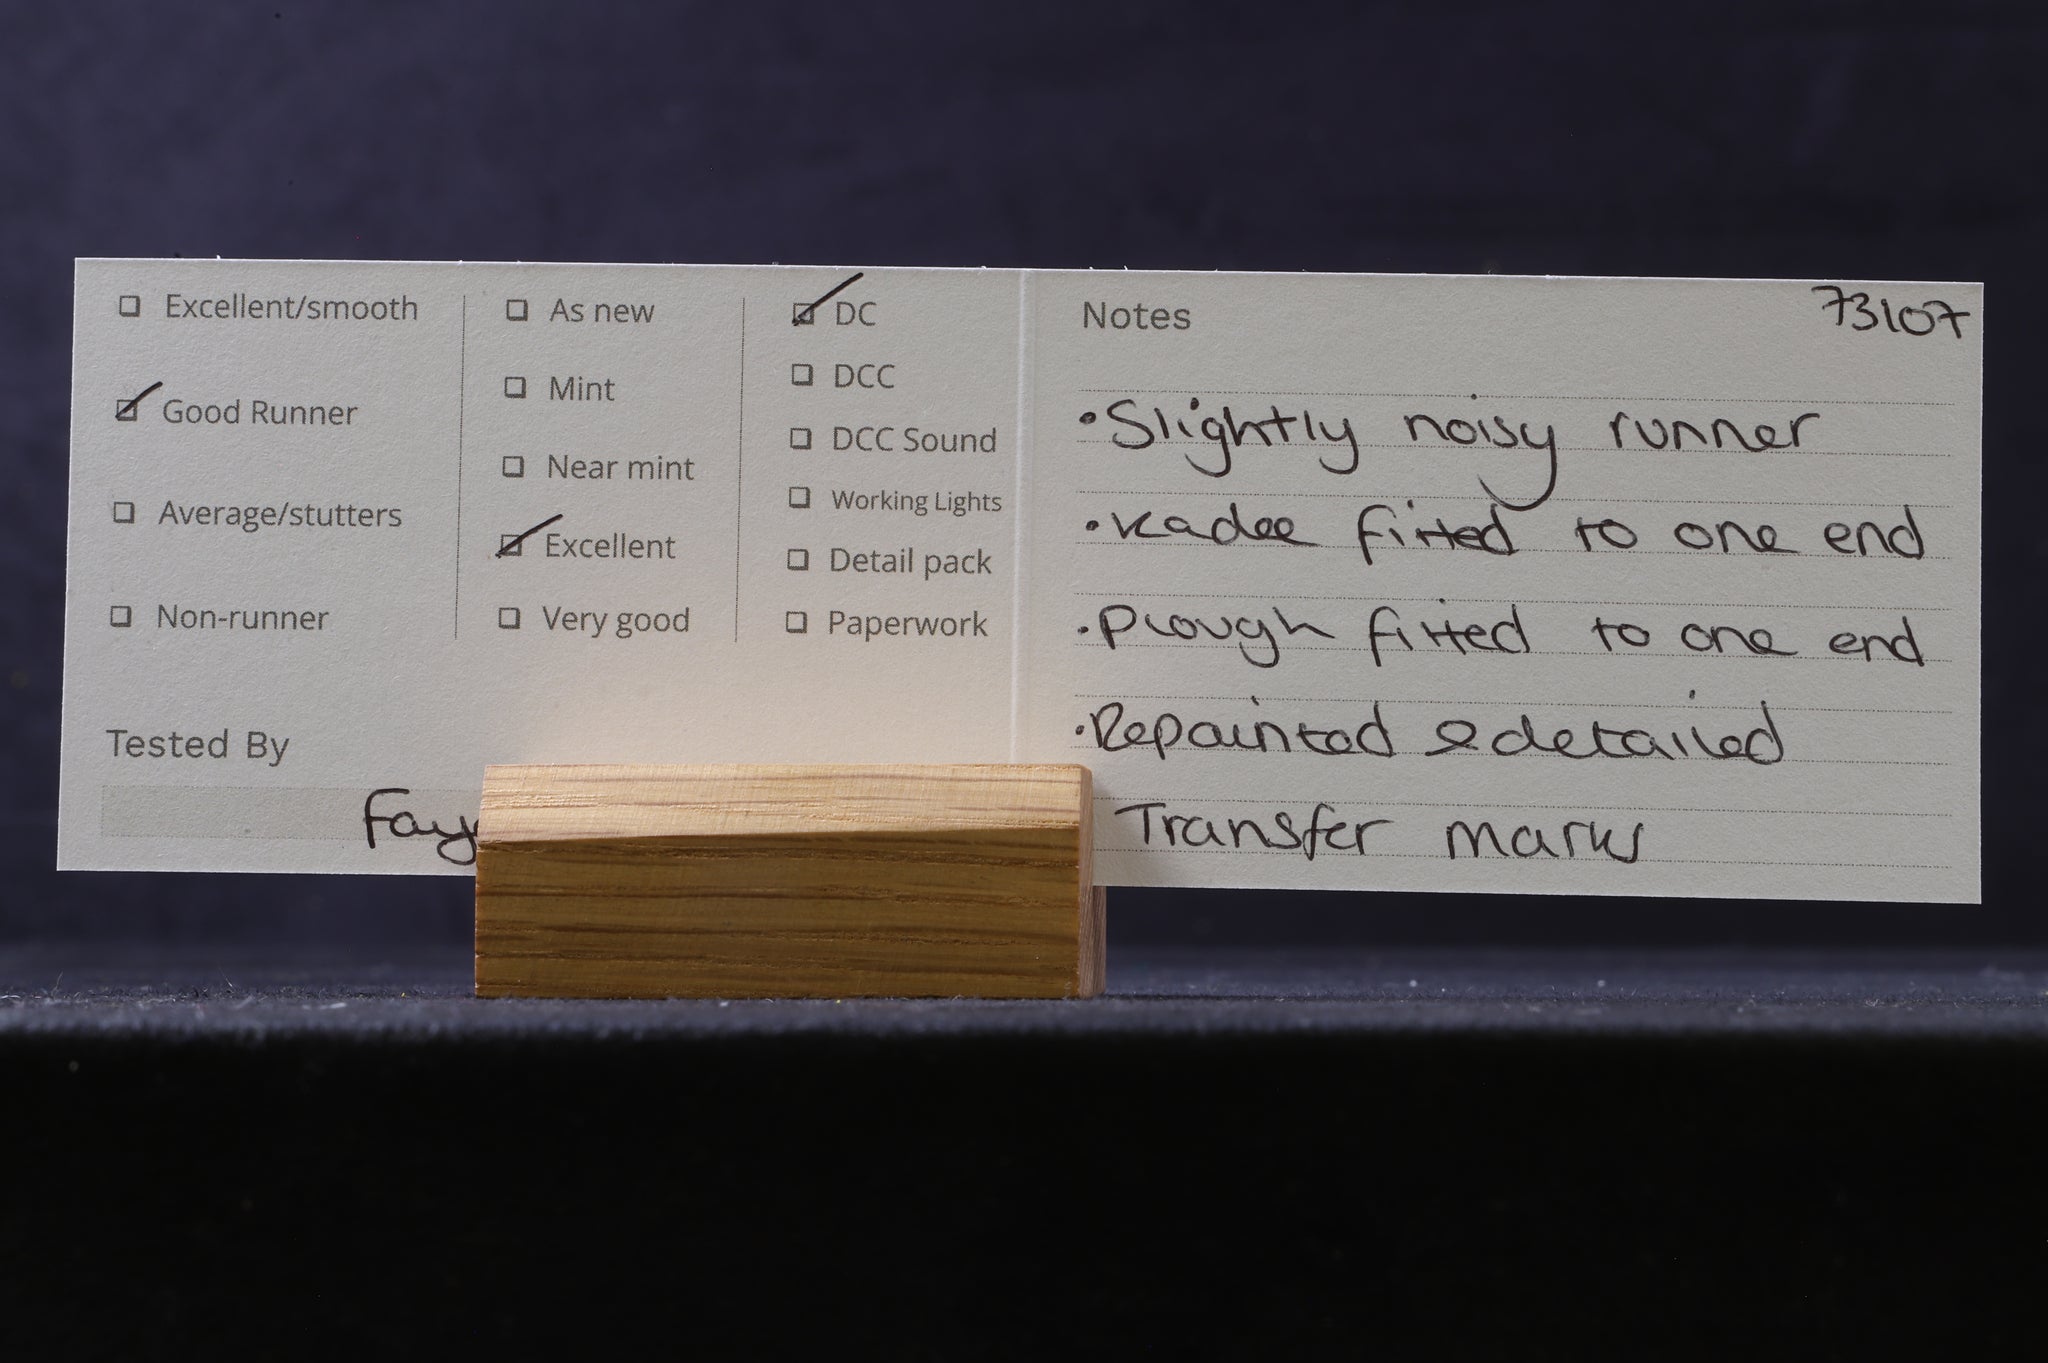 ☐ Excellent/smooth
☑ Good Runner
☐ Average/stutters
☐ Non-runner
☐ As new
☐ Mint
☐ Near mint
☑ Excellent
☐ Very good
☑ DC
☐ DCC
☐ DCC Sound
☐ Working Lights
☐ Detail pack
☐ Paperwork
Tested By
Notes
73107
• Slightly noisy runner
• Kadee fitted to one end
• Plough fitted to one end
• Repainted & detailed
Transfer marks